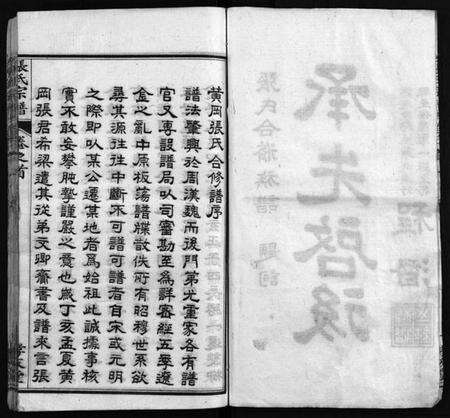 承先啓後
張氏合修族譜 題詞
程潛
黃岡張氏合修譜序
譜法肇興於周漢魏而後門第尤重家各有譜
官又專設譜局以司審勘至爲詳審經五季遼
金之亂中原板蕩譜牒散佚所有昭穆世系欲
尋其源往往中斷不可譜可譜者自宋或元明
之際即以某公遷某地者爲始祖此誠據事核
實不敢妄攀肫摯謹嚴之意也歲丁亥孟夏黃
岡張君希梁遣其從弟文卿齎書及譜來言張
張氏宗譜 卷之首
孝友堂